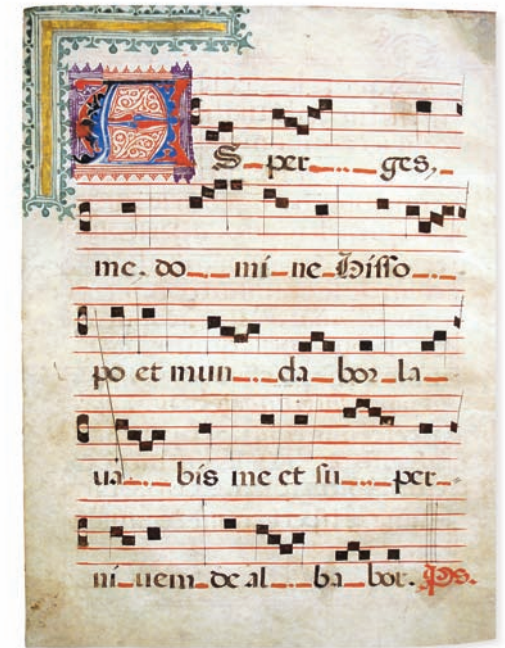 ASper.....ges,
me. do...mi_ne_Hisso....
po et mun....da_bor_la_
ua....bis me et su....per..
ni_uem_de al...ba_bor. Ps.